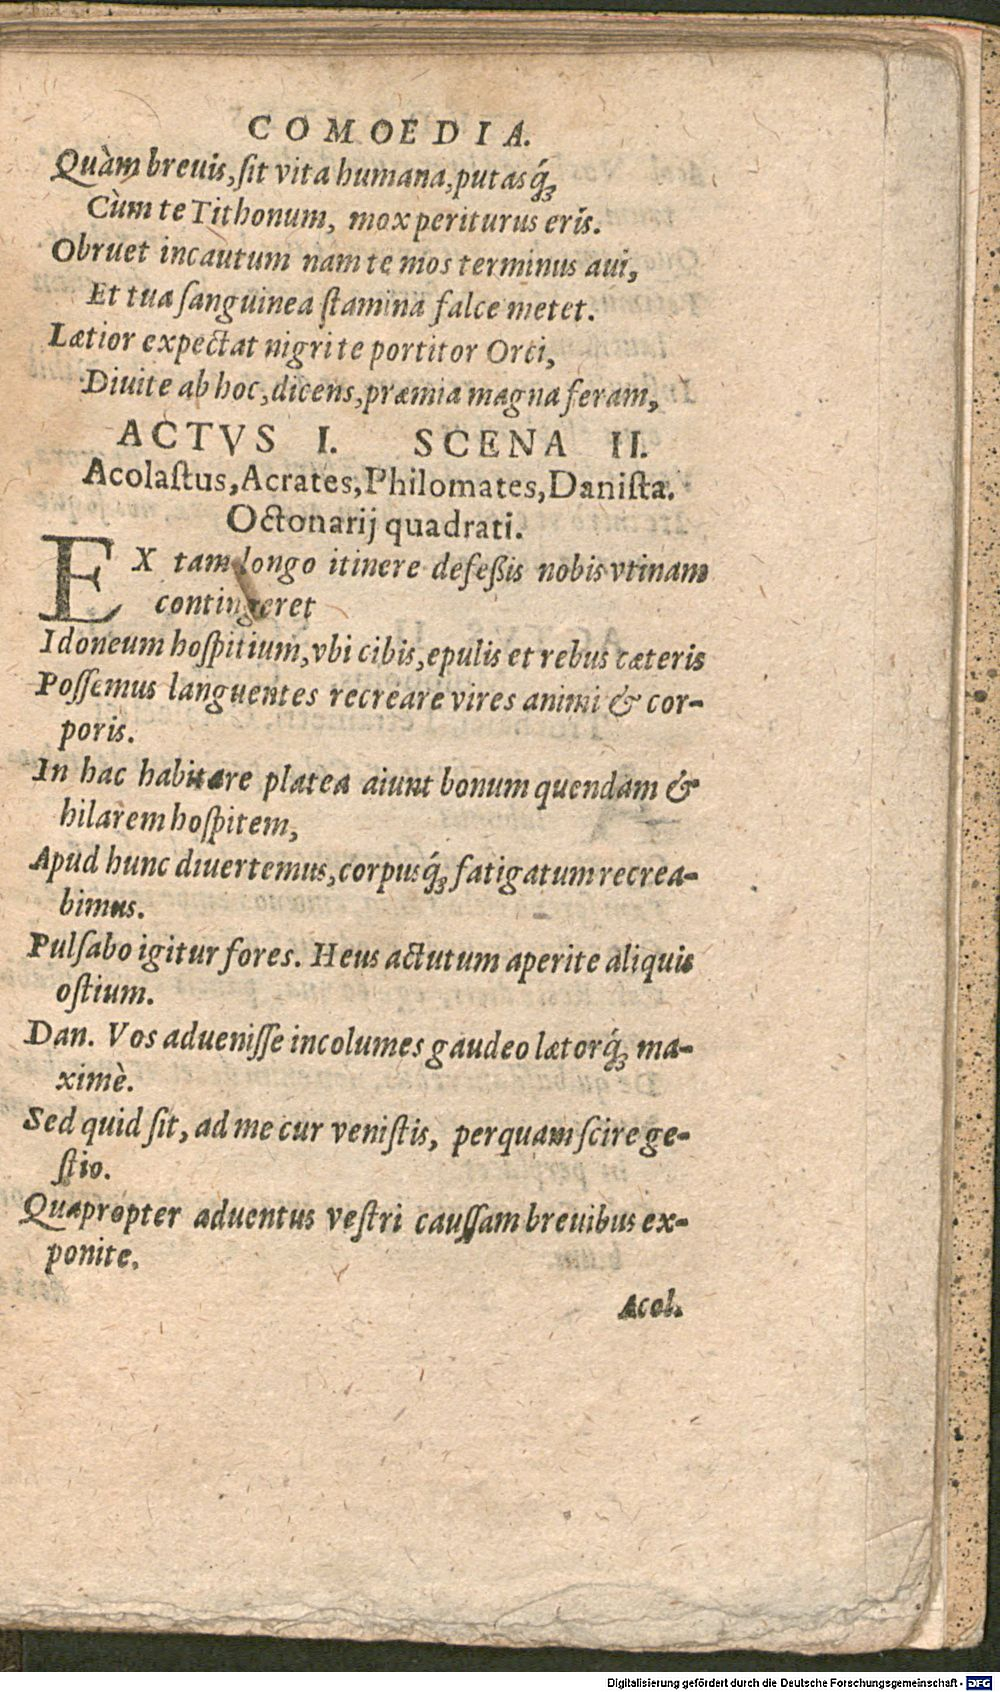 COMOEDIA.
Quàm breuis, ſit vita humana, putasq́;
Cùm te Tithonum, mox periturus eris.
Obruet incautum nam te mos terminus aui,
Et tua ſanguinea ſtamina falce metet.
Lætior expectat nigri te portitor Orci,
Diuite ab hoc, dicens, præmia magna feram,
ACTVS I. SCENA II.
Acolaſtus, Acrates, Philomates, Daniſta.
Octonarij quadrati.
EX tam longo itinere defeßis nobis vtinam
contingeret
Idoneum hoſpitium, vbi cibis, epulis et rebus cæteris
Poſſemus languentes recreare vires animi & cor-
poris.
In hac habitare platea aiunt bonum quendam &
hilarem hoſpitem,
Apud hunc diuertemus, corpusq́; fatigatum recrea-
bimus.
Pulſabo igitur fores. Heus actutum aperite aliquis
oſtium.
Dan. Vos adueniſſe incolumes gaudeo lætorq́; ma-
ximè.
Sed quid ſit, ad me cur veniſtis, perquam ſcire ge-
ſtio.
Quapropter aduentus veſtri cauſſam breuibus ex-
ponite.
Acol.
Digitalisierung gefördert durch die Deutsche Forschungsgemeinschaft - DFG